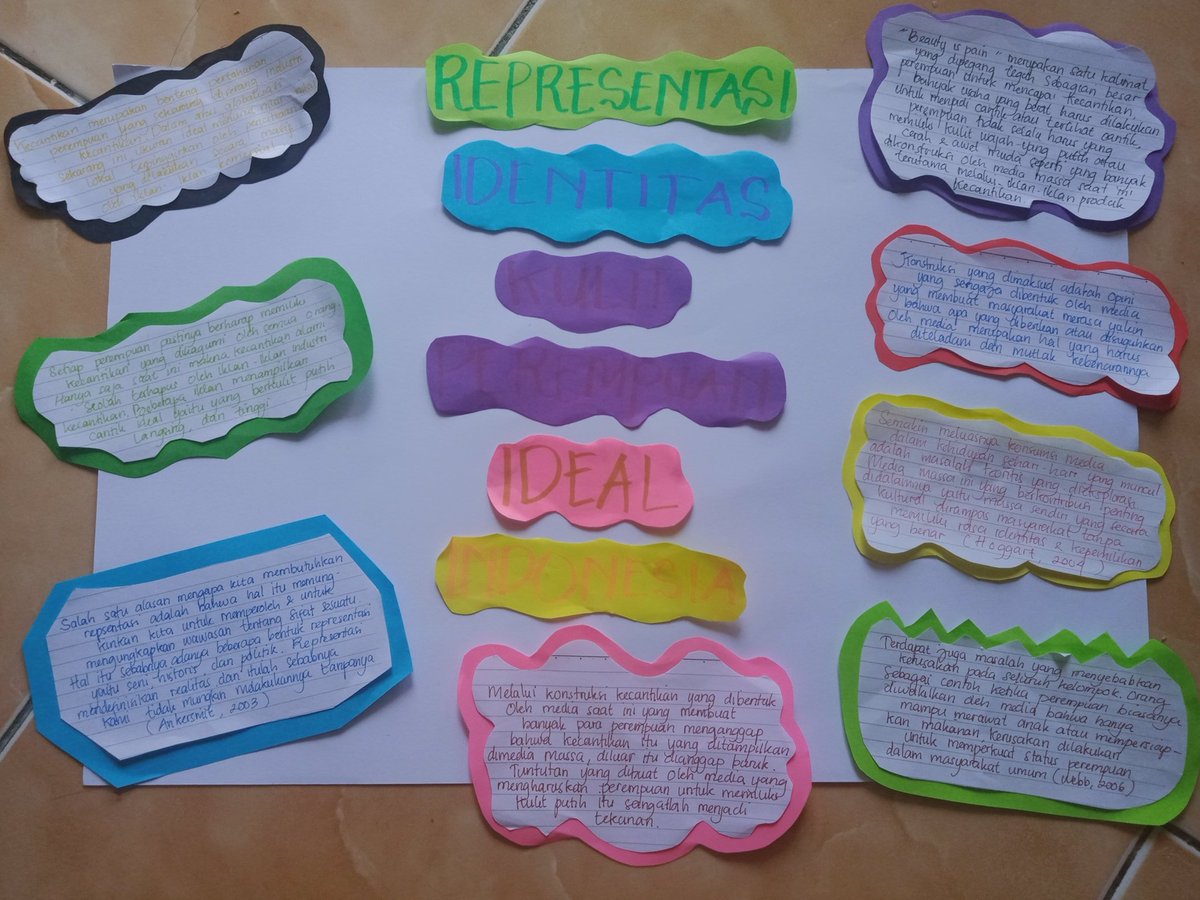 REPRESENTASI
IDENTITAS
KULIT
PEREMPUAN
IDEAL
INDONESIA
Kecantikan merupakan benteng pertahanan
perempuan yang sekarang diserang industri
kecantikan. Dalam atau globalisasi
sekarang ini ukuran ideal nilai kecantikan
lokal terpinggirkan oleh
yang dilakukan secara masif
oleh iklan-iklan komersial
Setiap perempuan pastinya berharap memiliki
kecantikan yang dikagumi oleh semua orang.
Hanya saja saat ini makna kecantikan alami
seolah terhapus oleh iklan-iklan industri
kecantikan. Beberapa iklan menampilkan
cantik ideal yaitu yang berkulit putih
langsing, dan tinggi
Salah satu alasan mengapa kita membutuhkan
repsentasi adalah bahwa hal itu memung-
kinkan kita untuk memperoleh & untuk
mengungkapkan wawasan tentang sifat sesuatu.
Hal itu sebabnya adanya beberapa bentuk representasi
yaitu seni historis dan politik. Representasi
mendefinisikan realitas dan itulah sebabnya
kami tidak mungkin melakukannya tanpanya
(Ankersmit, 2003)
Melalui konstruksi kecantikan yang dibentuk
Oleh media saat ini yang membuat
banyak para perempuan menganggap
bahwa kecantikan itu yang ditampilkan
dimedia massa, diluar itu dianggap buruk.
Tuntutan yang dibuat oleh media yang
mengharuskan perempuan untuk memiliki
kulit putih itu sangatlah menjadi
tekanan.
"Beauty is pain" merupakan satu kalimat
yang dipegang teguh sebagian besar
perempuan untuk mencapai kecantikan
banyak usaha yang besar harus dilakukan
untuk menjadi cantik atau terlihat cantik,
perempuan tidak selalu harus yang
memiliki kulit wajah yang putih atau
cerah & awet muda seperti yang banyak
dikonstruksi oleh media massa saat ini
terutama melalui iklan-iklan produk
kecantikan
Konstruksi yang dimaksud adalah opini
yang sengaja dibentuk oleh media
yang membuat masyarakat merasa yakin
bahwa apa yang diberikan atau disuguhkan
oleh media merupakan hal yang harus
diteladani dan mutlak kebenarannya
Semakin meluasnya konsumsi media
dalam kehidupan sehari-hari yang muncul
adalah masalah teoritis yang dieksplorasi
Media massa ini yang berkontribusi penting
didalamnya yaitu massa sendiri yang secara
kultural dirampas masyarakat tanpa
memiliki rasa identitas & kepemilikan
yang benar (Hoggart, 2004)
Terdapat juga masalah yang menyebabkan
kerusakan pada seluruh kelompok orang
Sebagai contoh ketika perempuan biasanya
diwakilkan oleh media bahwa hanya
mampu merawat anak atau mempersiap-
kan makanan kerusakan dilakukan
untuk memperkuat status perempuan
dalam masyarakat umum (Webb, 2006)